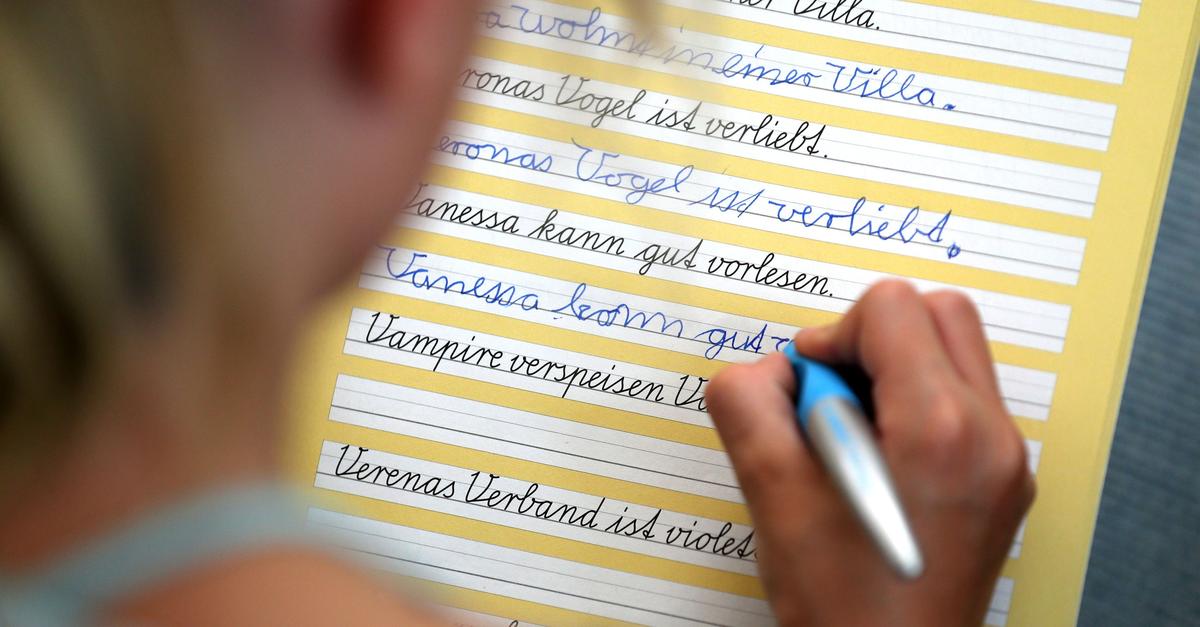 Villa.
wohnt in einer Villa.
ronas Vogel ist verliebt.
eronas Vogel ist verliebt.
Vanessa kann gut vorlesen.
Vanessa kann gut
Vampire verspeisen
Verenas Verband ist violet